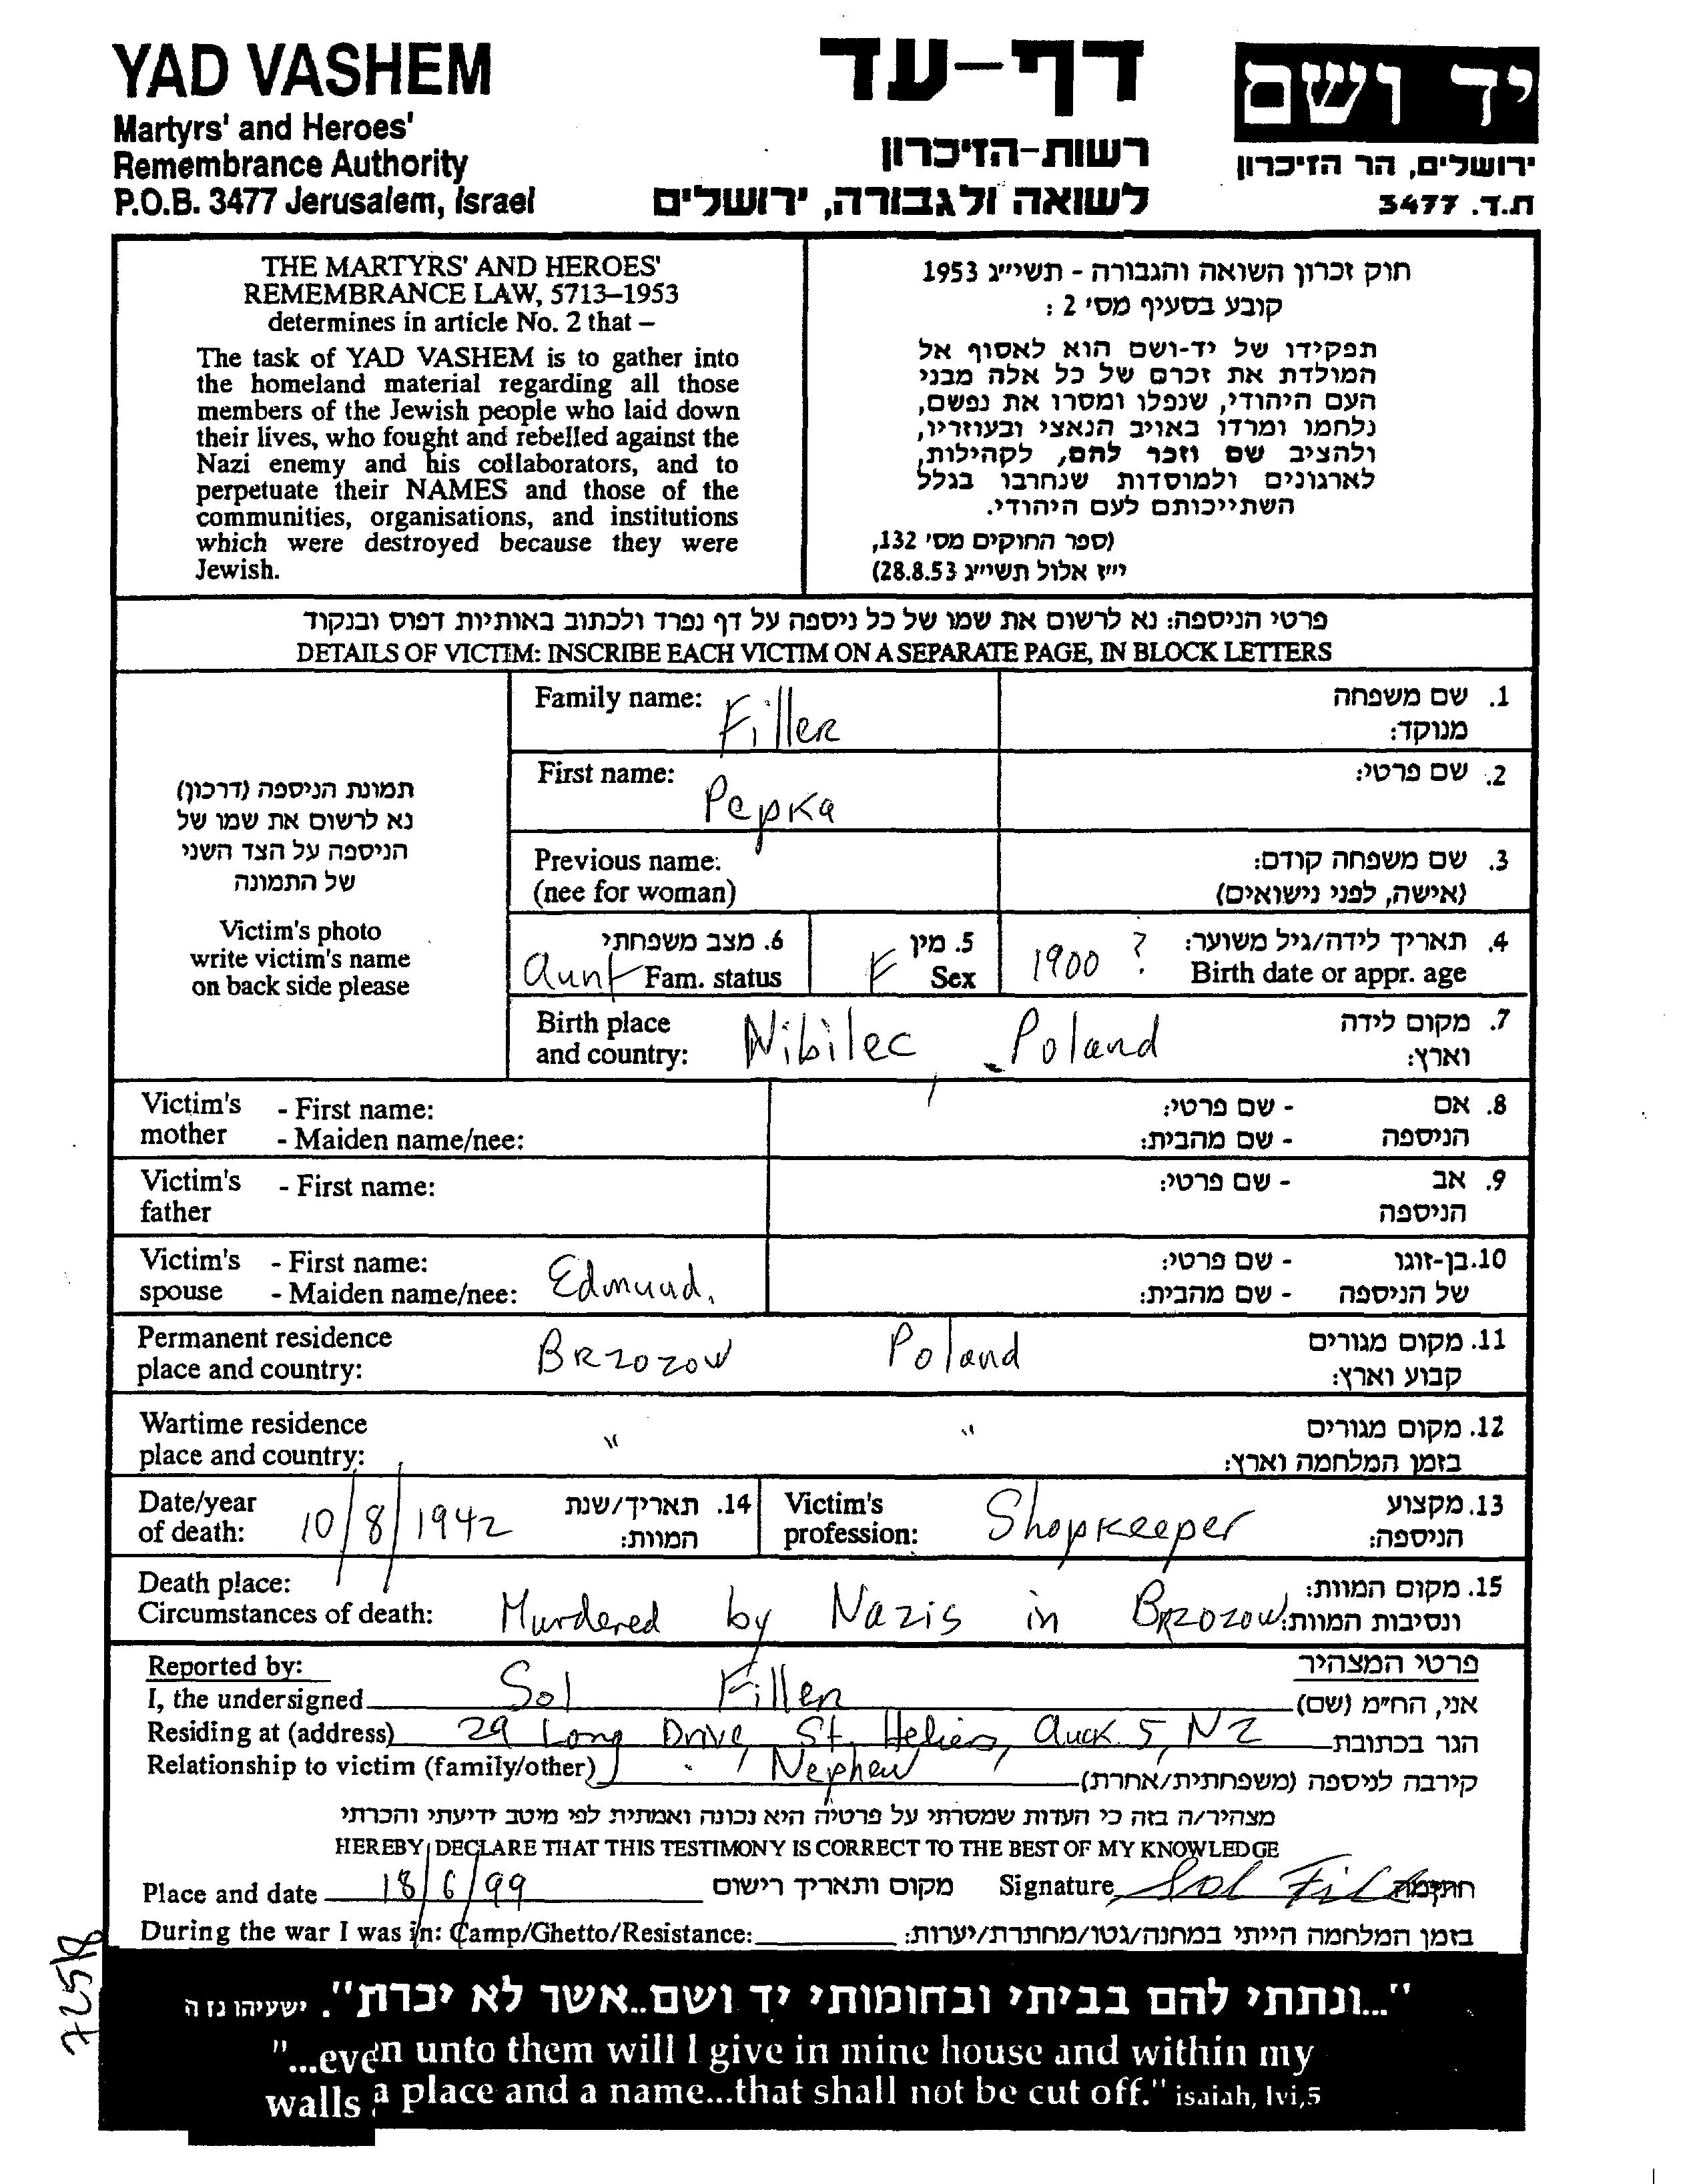 YAD VASHEM
Martyrs' and Heroes'
Remembrance Authority
P.O.B. 3477 Jerusalem, Israel
דף-עד
רשות-הזיכרון
לשואה ולגבורה, ירושלים
יד ושם
ירושלים, הר הזיכרון
ת.ד. 3477
THE MARTYRS' AND HEROES'
REMEMBRANCE LAW, 5713–1953
determines in article No. 2 that –
The task of YAD VASHEM is to gather into
the homeland material regarding all those
members of the Jewish people who laid down
their lives, who fought and rebelled against the
Nazi enemy and his collaborators, and to
perpetuate their NAMES and those of the
communities, organisations, and institutions
which were destroyed because they were
Jewish.
חוק זכרון השואה והגבורה - תשי״ג 1953
קובע בסעיף מס׳ 2 :
תפקידו של יד-ושם הוא לאסוף אל
המולדת את זכרם של כל אלה מבני
העם היהודי, שנפלו ומסרו את נפשם,
נלחמו ומרדו באויב הנאצי ובעוזריו,
ולהציב שם וזכר להם, לקהילות,
לארגונים ולמוסדות שנחרבו בגלל
השתייכותם לעם היהודי.
(ספר החוקים מס׳ 132,
י״ז אלול תשי״ג 28.8.53)
פרטי הניספה: נא לרשום את שמו של כל ניספה על דף נפרד ולכתוב באותיות דפוס ובנקוד
DETAILS OF VICTIM: INSCRIBE EACH VICTIM ON A SEPARATE PAGE, IN BLOCK LETTERS
תמונת הניספה (דרכון)
נא לרשום את שמו של
הניספה על הצד השני
של התמונה
Victim's photo
write victim's name
on back side please
Family name: Filler 1. שם משפחה
מנוקד:
First name: Pepka 2. שם פרטי:
Previous name: 3. שם משפחה קודם:
(nee for woman) (אישה, לפני נישואים)
6. מצב משפחתי 5. מין 4. תאריך לידה/גיל משוער:
aunt Fam. status F Sex 1900 ? Birth date or appr. age
Birth place Nibilec, Poland 7. מקום לידה
and country: וארץ:
Victim's - First name: - שם פרטי: 8. אם
mother - Maiden name/nee: - שם מהבית: הניספה
Victim's - First name: - שם פרטי: 9. אב
father הניספה
Victim's - First name: - שם פרטי: 10. בן-זוגו
spouse - Maiden name/nee: Edmund. - שם מהבית: של הניספה
Permanent residence Brzozow Poland 11. מקום מגורים
place and country: קבוע וארץ:
Wartime residence " " 12. מקום מגורים
place and country: בזמן המלחמה וארץ:
Date/year 14. תאריך/שנת Victim's 13. מקצוע
of death: 10/8/1942 המוות: profession: Shopkeeper הניספה:
Death place: 15. מקום המוות:
Circumstances of death: Murdered by Nazis in Brzozow ונסיבות המוות:
Reported by: פרטי המצהיר
I, the undersigned Sol Filler אני, הח״מ (שם)
Residing at (address) 29 Long Drive, St. Heliers, Auck. 5, NZ הגר בכתובת
Relationship to victim (family/other) Nephew קירבה לניספה (משפחתית/אחרת)
מצהיר/ה בזה כי העדות שמסרתי על פרטיה היא נכונה ואמתית לפי מיטב ידיעתי והכרתי
HEREBY DECLARE THAT THIS TESTIMONY IS CORRECT TO THE BEST OF MY KNOWLEDGE
Place and date 18/6/99 מקום ותאריך רישום Signature Sol Filler חתימה
During the war I was in: Camp/Ghetto/Resistance: בזמן המלחמה הייתי במחנה/גטו/מחתרת/יערות:
"...ונתתי להם בביתי ובחומותי יד ושם..אשר לא יכרת". ישעיהו נז ה
"...even unto them will I give in mine house and within my
walls a place and a name...that shall not be cut off." isaiah, lvi,5